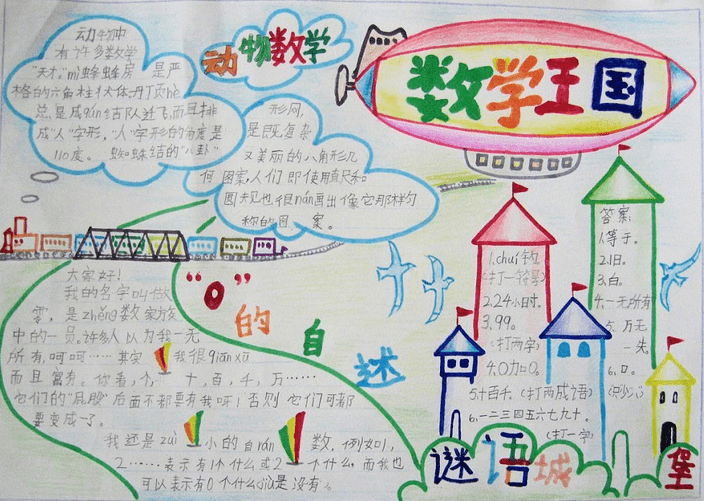 数学王国
动物数学
动物中
有许多数学
“天才”mì蜂蜂房 是严
格的六角柱状体丹顶hè
总是成qún结队迁飞,而且排
成“人”字形,“人”字形的角度是
110度。 蜘蛛结的“八卦”
形网,
是既复杂
又美丽的八角形几
何图案,人们即使用直尺和
圆规也很nán画出像它那样匀
称的图案。
“0”的自述
大家好!
我的名字叫做
零,是zhěng数家族
中的一员。许多人以为我一无
所有,呵呵……其实 我很qiān xū
而且富有。你看,个、十,百,千,万……
它们的“屁股”后面不都要有我呀!否则它们可都
要变成一了。
我还是zuì小的自rán数,例如1,
2……表示有1个什么或2个什么,而我也
可以表示有0个什么jiù是没有。
1.chuí钩
(打一符号)
2.24小时。
3.99。
(打两字)
4.0加0。
5.十百千。(打两成语)
6.一二三四五六七九十。
(打一字)
答案:
1.等于。
2.旧。
3.白。
4.一无所有
5.万无
一失。
6.口。
谜语城堡